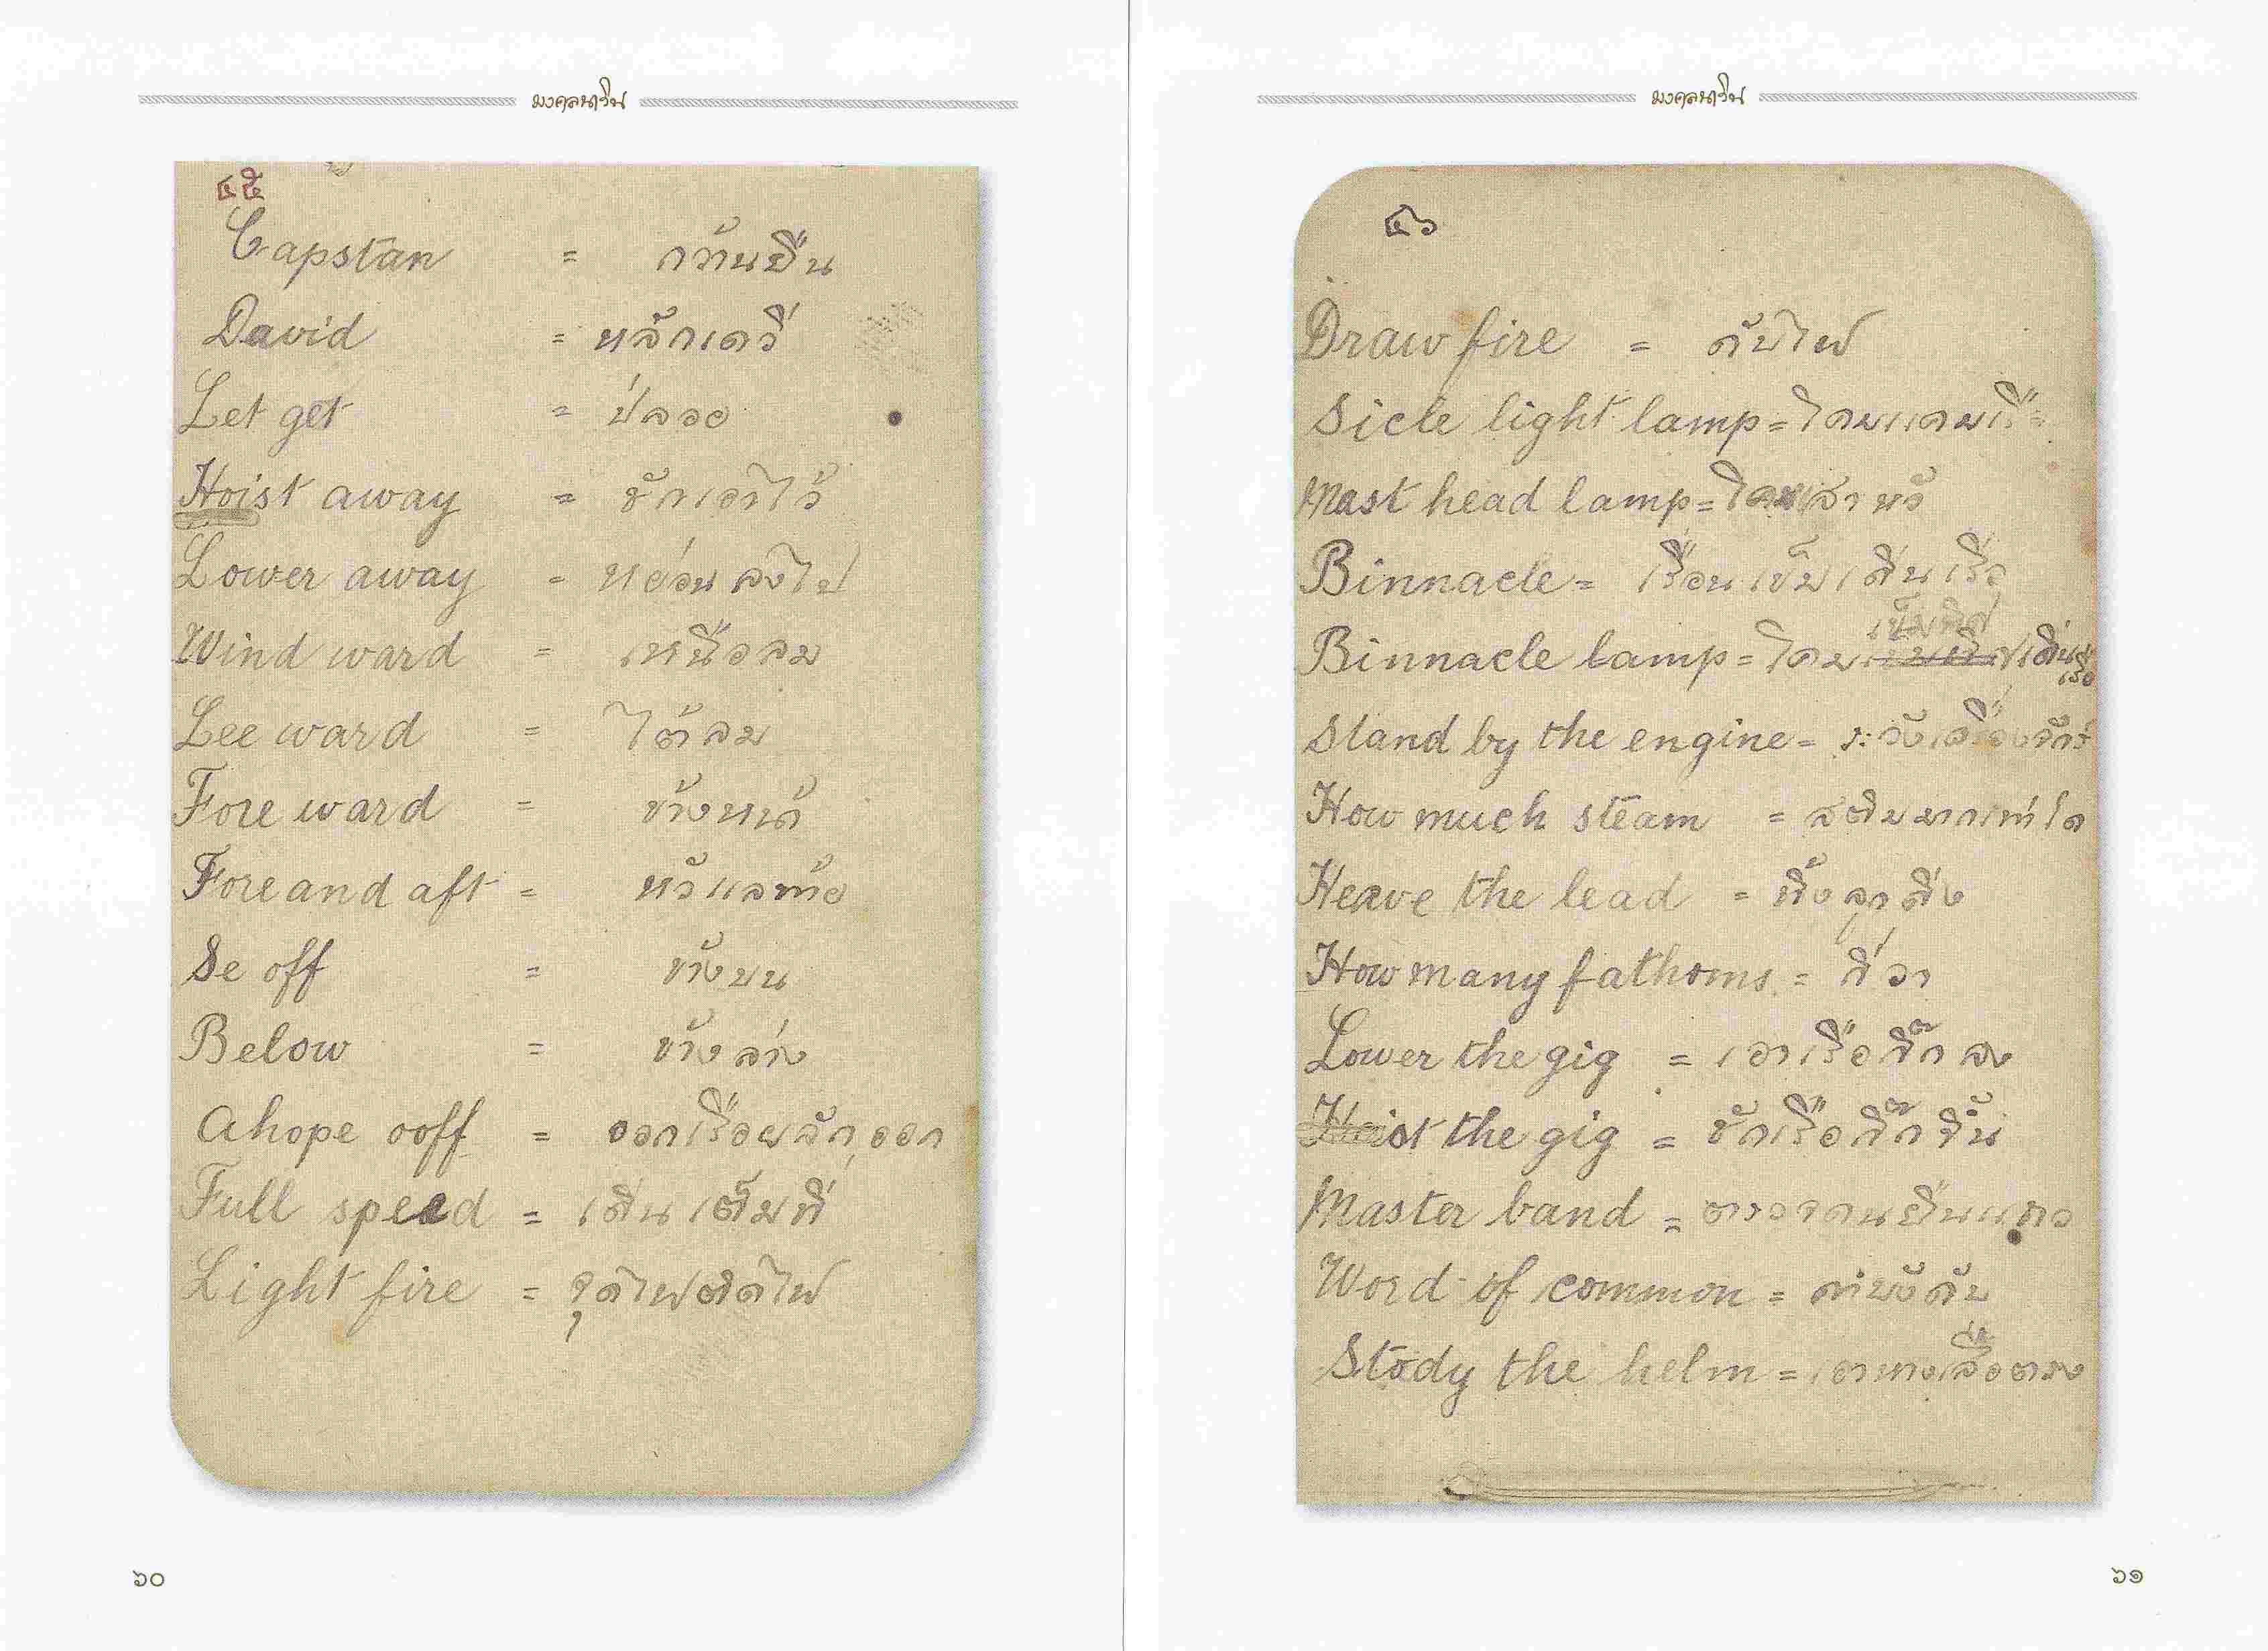 มงคลนาวิน
๔๕
Capstan = กว้านยืน
David = หลักเดวี่
Let get = ปล่อย
Hoist away = ชักเอาไว้
Lower away = หย่อนลงไป
Wind ward = เหนือลม
Lee ward = ใต้ลม
Fore ward = ข้างหน้า
Fore and aft = หัวแลท้าย
Se off = ข้างบน
Below = ข้างล่าง
Ahope ooff = ออกเรือผลักออก
Full speed = เดินเต็มที่
Light fire = จุดไฟติดไฟ
๖๐
มงคลนาวิน
๔๖
Draw fire = ดับไฟ
Sicle light lamp = โคมแคมเรือ
Mast head lamp = โคมเสาหัว
Binnacle = เรือนเข็มเดินเรือ
เข็มทิศ
Binnacle lamp = โคม เดินเรือ
Stand by the engine = ระวังเครื่องจักร์
How much steam = สตีมมากเท่าใด
Heave the lead = ทิ้งลูกดิ่ง
How many fathoms = กี่วา
Lower the gig = เอาเรือกิ๊กลง
Hoist the gig = ชักเรือกิ๊กขึ้น
Master band = ตรวจคนยืนแถว
Word of common = คำบังคับ
Stody the helm = เอาหางเสือตรง
๖๑